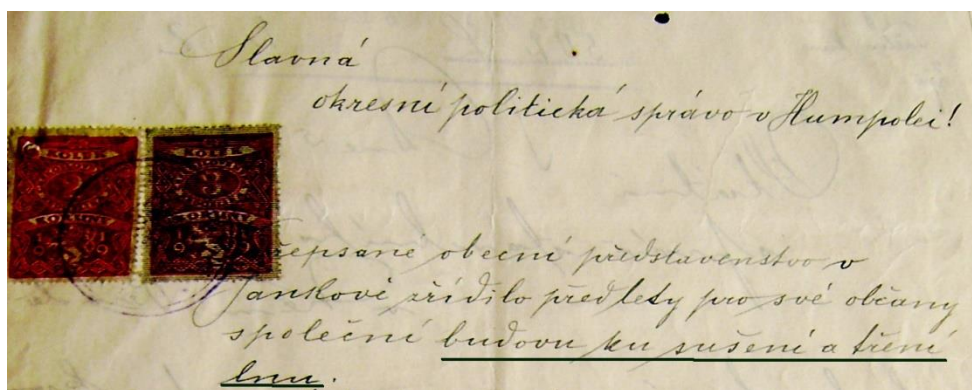 Slavná
okresní politická správo v Humpolci!
KOLEK
KOLEK
2
KORUNY
KORUNY
1919
řepsané obecní představenstvo v
Jankově zřídilo předlety pro své občany
společní budovu ku sušení a tření
lnu.